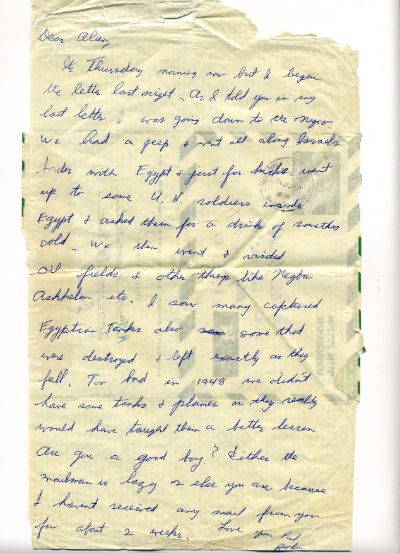 Dear Alan,
It Thursday morning now but I began
the letter last night. As I told you in my
last letter I was going down to the Negev
We had a jeep & went all along Israels
border with Egypt & just for kicks went
up to some U.N. soldiers inside
Egypt & asked them for a drink of something
cold. We then went & visited
oil fields & other things like Negba
Ashkelon etc. I saw many captured
Egyptian Tanks also some that
were destroyed & left exactly as they
fell. Too bad in 1948 we didn't
have some tanks & planes or they really
would have taught them a better lesson
Are you a good boy? Either the
mailman is lazy or else you are because
I havent received any mail from you
for about 2 weeks. Love your
Bob